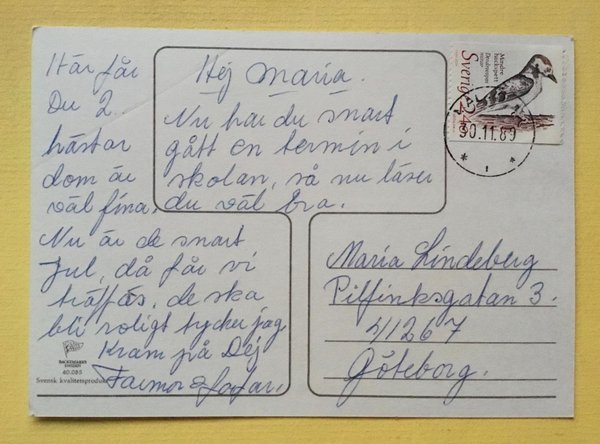 Hej Maria.
Nu har du snart
gått en termin i
skolan, så nu läser
du väl bra.
Här får
Du 2..
hästar
dom är
väl fina.
Nu är de snart
Jul, då får vi
träffas, de ska
bli roligt tycker jag
Kram på Dej
Farmor o Farfar.
SWEDEN
40.085
Svensk kvalitetsprodukt
Sverige 2
Mindre
hackspett
Dendrocopos
minor
30.11.89
Maria Lindeberg
Pilfinksgatan 3.
41267
Göteborg.